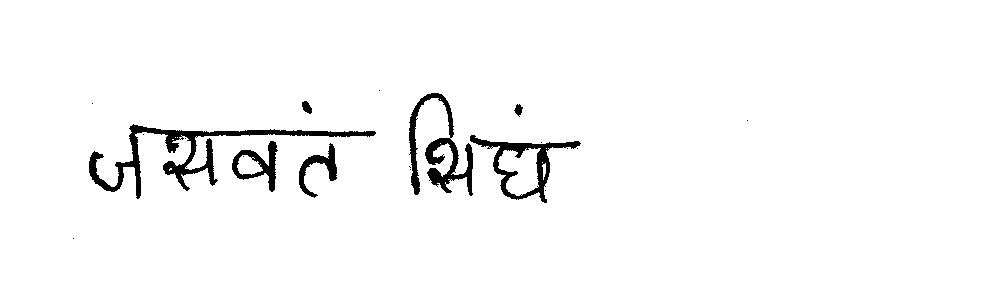 जसवतं सिघं